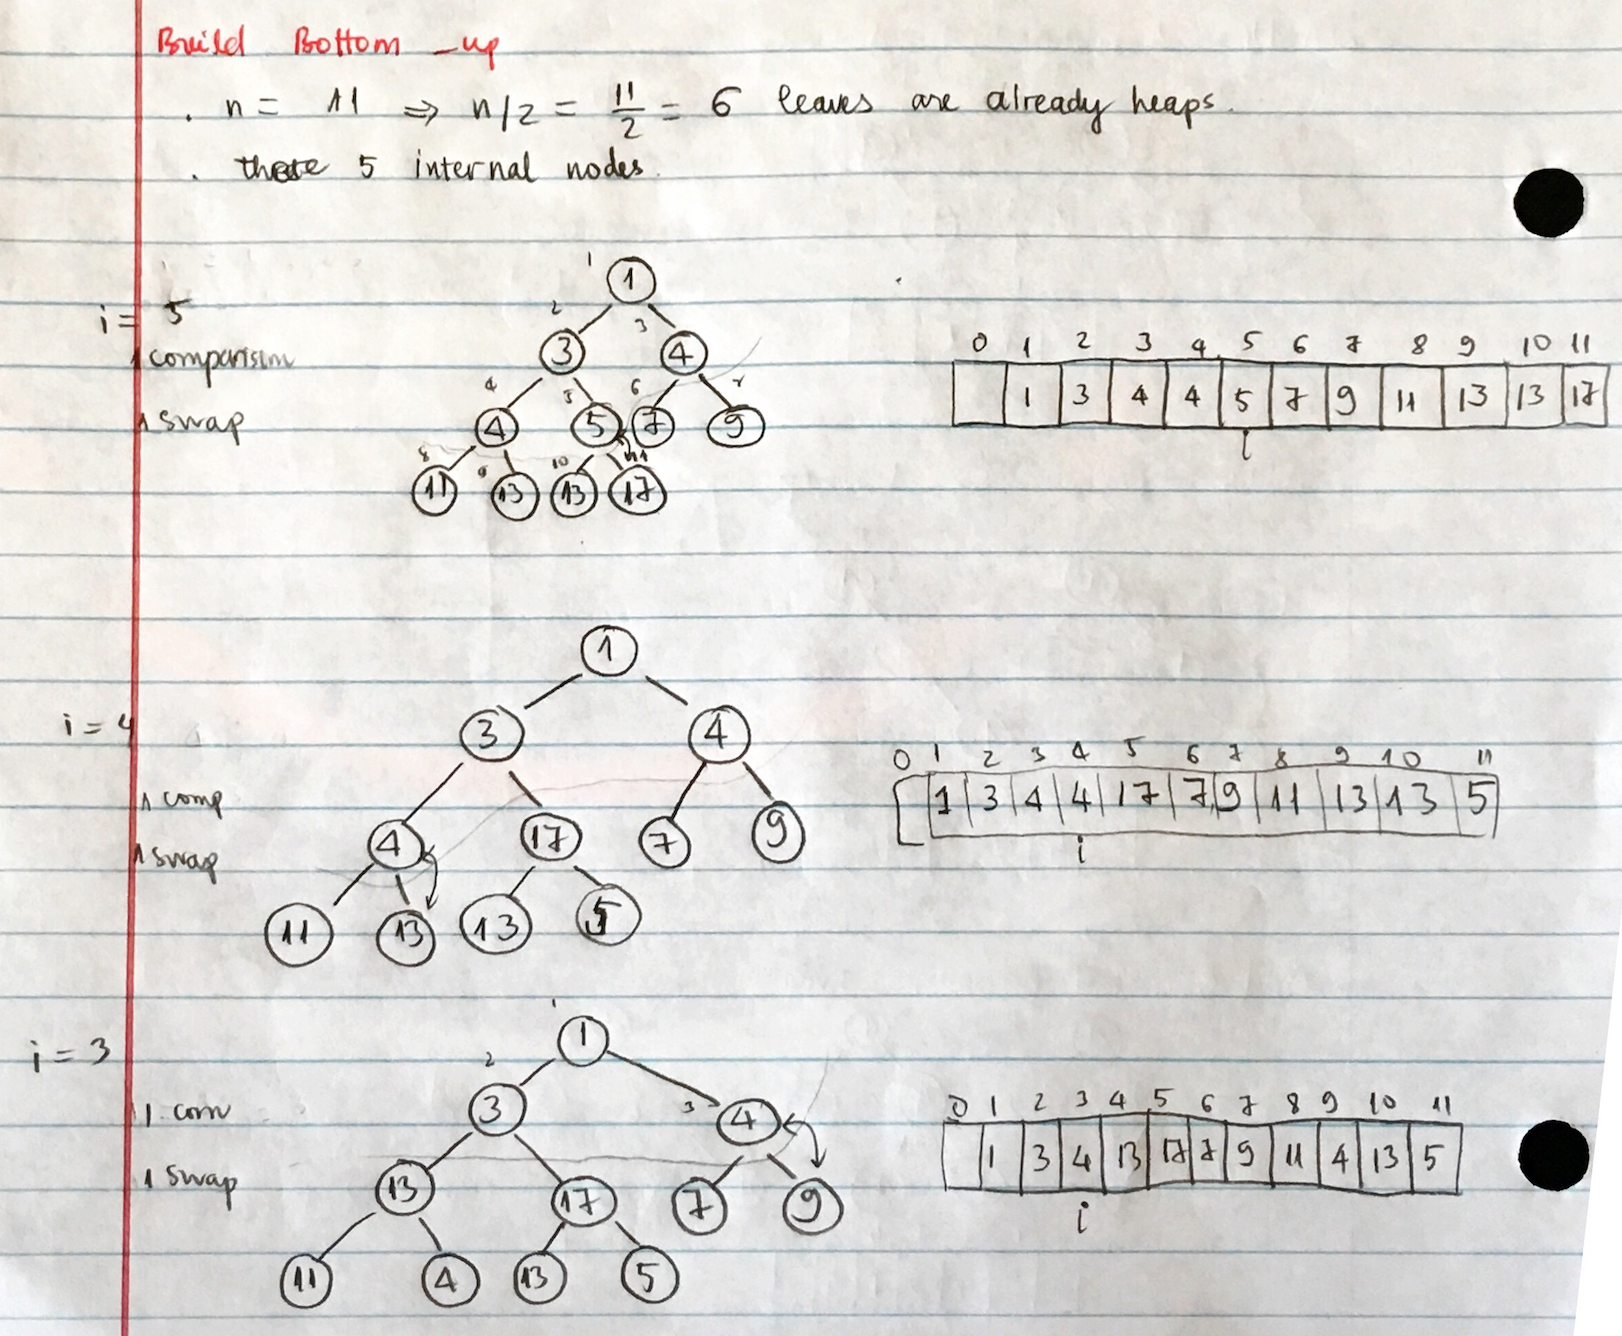 Build Bottom -up
. n = 11 ⇒ n/2 = 11/2 = 6 leaves are already heaps.
. 5 internal nodes.
i = 5
1 comparisim
1 swap
1
1
2 3
3 4
4 5 6 7
4 5 7 9
8 9 10 11
11 13 13 17
0 1 2 3 4 5 6 7 8 9 10 11
1 3 4 4 5 7 9 11 13 13 17
i
i = 4
1 comp
1 swap
1
3 4
4 17 7 9
11 13 13 5
0 1 2 3 4 5 6 7 8 9 10 11
1 3 4 4 17 7 9 11 13 13 5
i
i = 3
1 com
1 swap
1
1
2
3 3 4
13 17 7 9
11 4 13 5
0 1 2 3 4 5 6 7 8 9 10 11
1 3 4 13 17 7 9 11 4 13 5
i